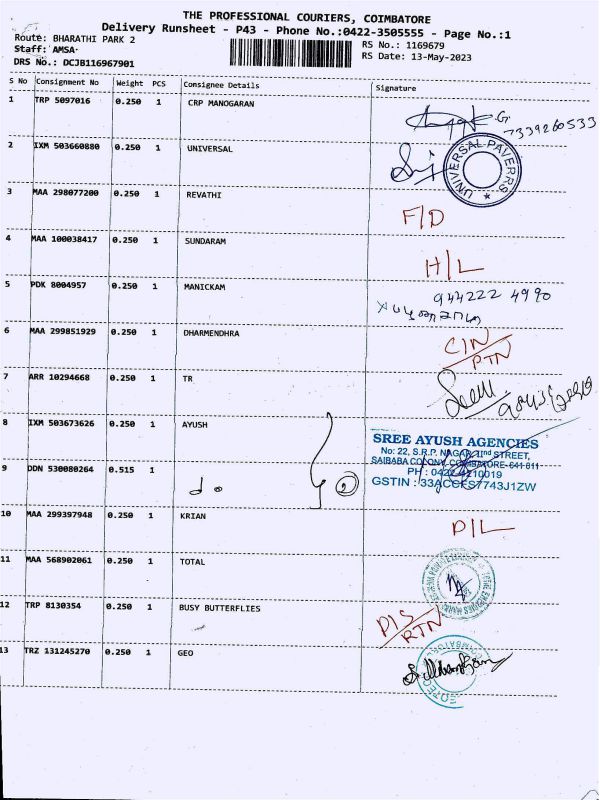 THE PROFESSIONAL COURIERS, COIMBATORE
Delivery Runsheet - P43 - Phone No.:0422-3505555 - Page No.:1
Route: BHARATHI PARK 2
RS No.: 1169679
Staff: AMSA
RS Date: 13-May-2023
DRS No.: DCJB116967901
S No Consignment No Weight PCS Consignee Details Signature
1 TRP 5097016 0.250 1 CRP MANOGARAN
7339260533
2 IXM 503660880 0.250 1 UNIVERSAL
UNIVERSAL PAVERRS
3 MAA 298077200 0.250 1 REVATHI
F/D
4 MAA 100038417 0.250 1 SUNDARAM
H/L
5 PDK 8004957 0.250 1 MANICKAM
944222 4990
6 MAA 299851929 0.250 1 DHARMENDHRA
CIN
RTN
7 ARR 10294668 0.250 1 TR
8 IXM 503673626 0.250 1 AYUSH
SREE AYUSH AGENCIES
No: 22, S.R.P. NAGAR, IInd STREET,
SAIBABA COLONY, COIMBATORE-641 011
PH : 0422-4210019
GSTIN : 33ACCFS7743J1ZW
9 DDN 530080264 0.515 1
do
2
10 MAA 299397948 0.250 1 KRIAN
D/L
11 MAA 568902061 0.250 1 TOTAL
12 TRP 8130354 0.250 1 BUSY BUTTERFLIES
DIS
RTN
13 TRZ 131245270 0.250 1 GEO